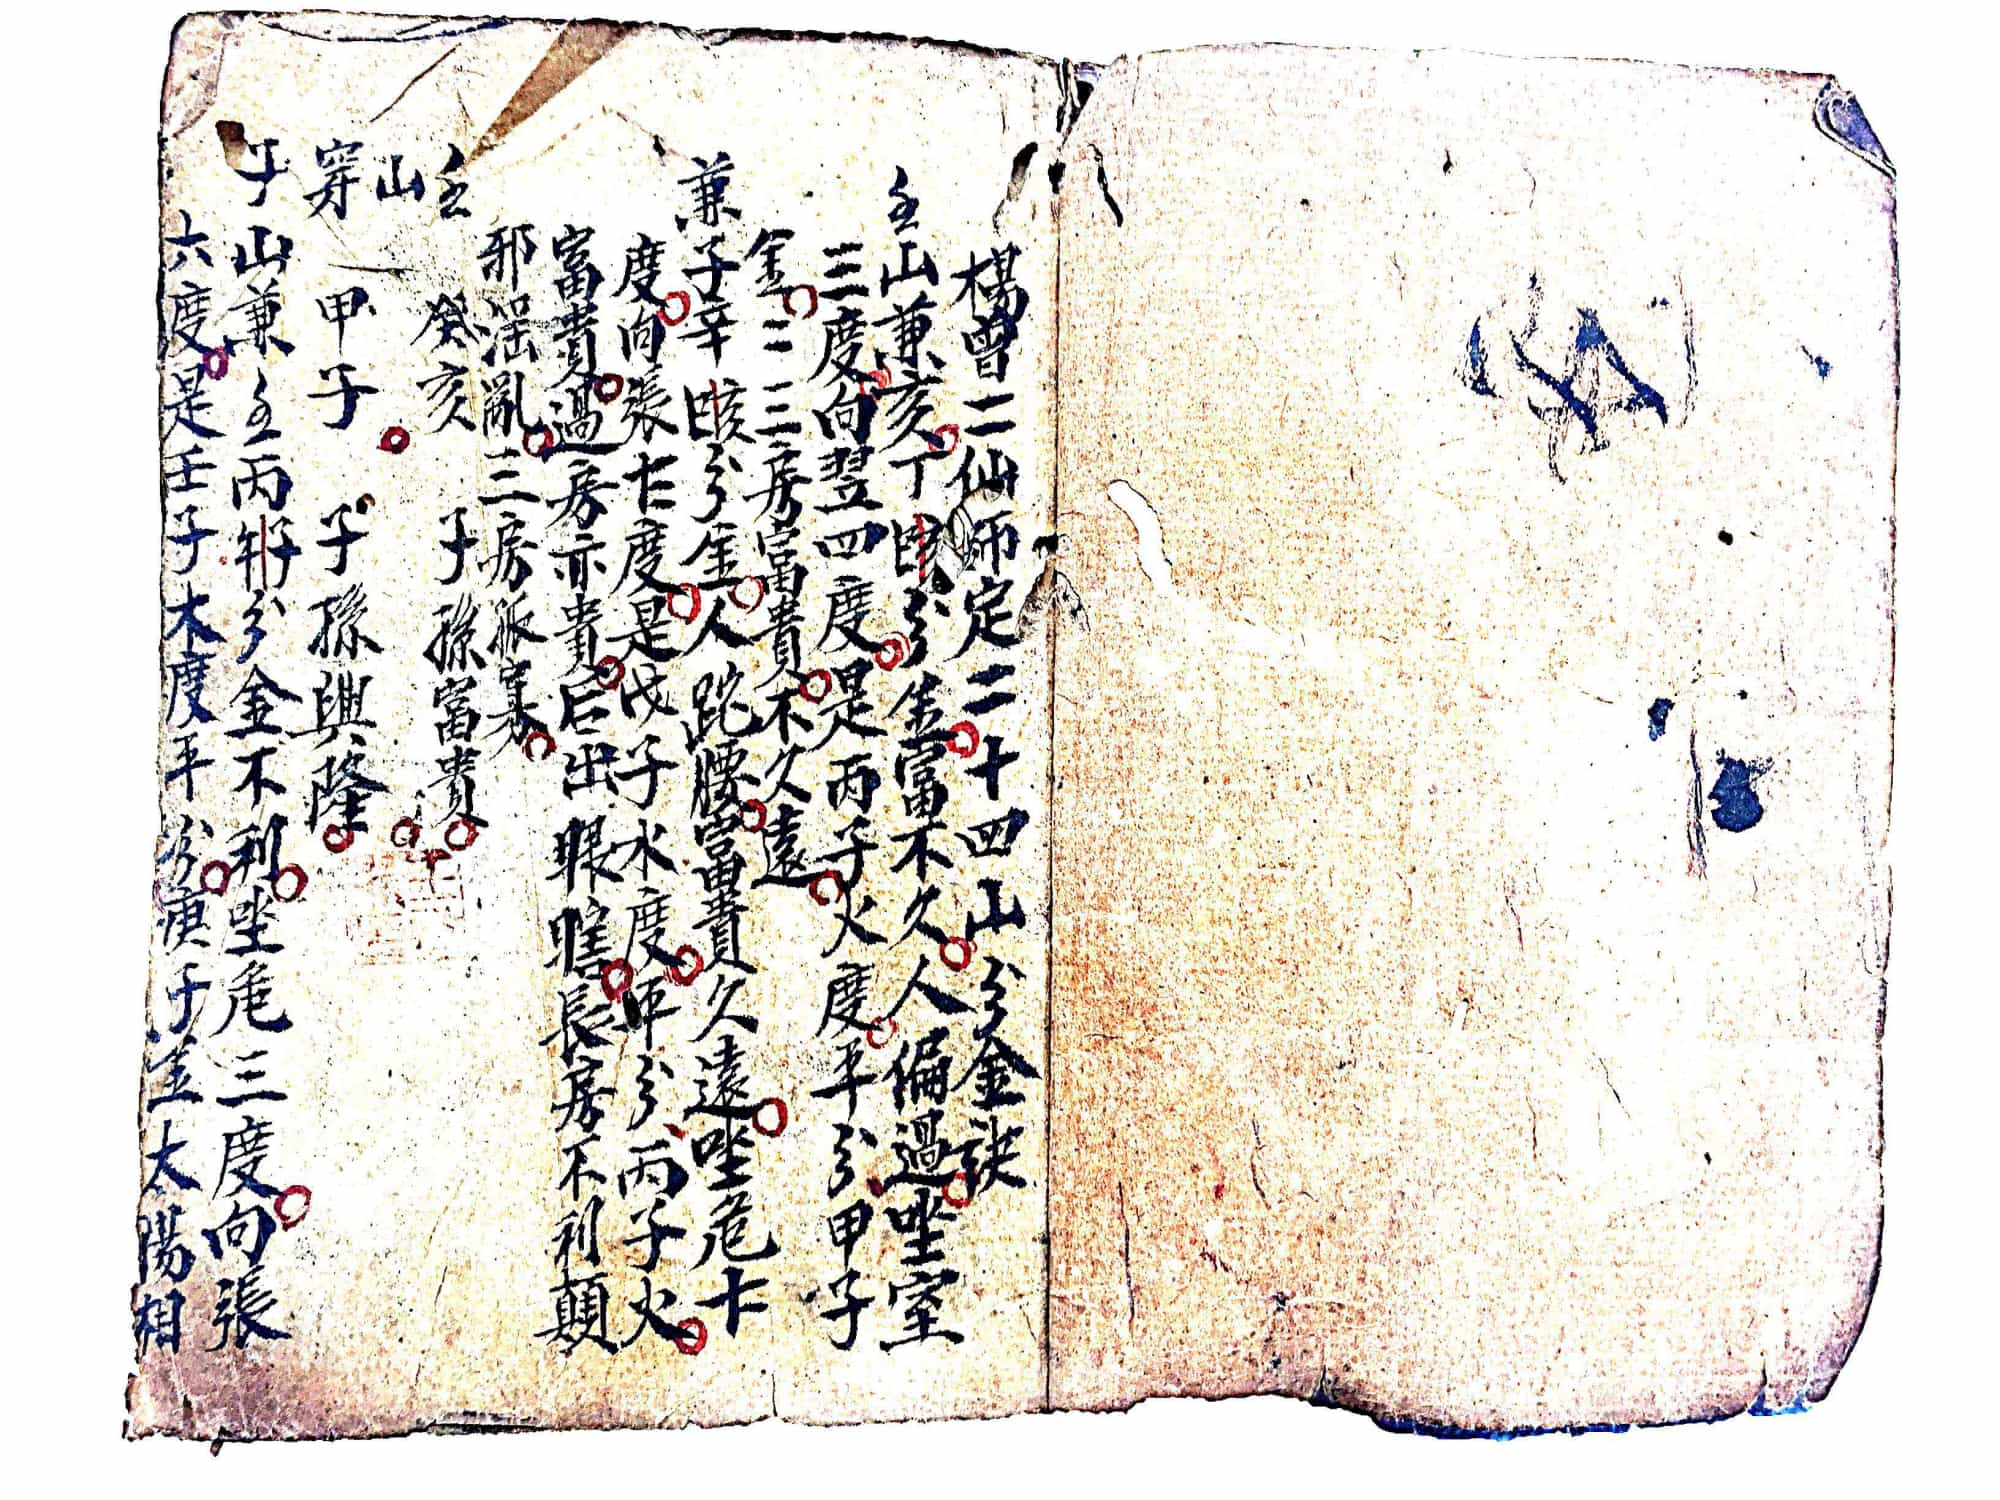 楊曾二仙師定二十四山分金訣
壬山兼亥丁分金富不久人偏過坐室
三度向翌四度是丙子火度平分甲子
金二三房富貴不久遠
兼子辛分金人跎腰富貴久遠坐危七
度向張七度是戊子水度平分丙子火
富貴過房亦貴后出眼瞎長房不利顛
邪淫亂三房孤寡
壬 癸亥 子孫富貴
山
穿 甲子 子孫興隆
子山兼壬丙分金不利坐危三度向張
六度是壬子木度平分庚子金太陽相